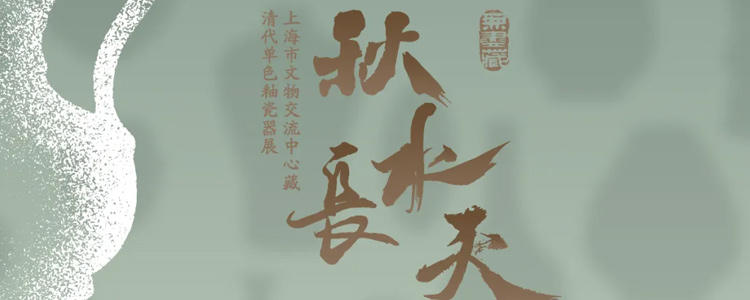 無盡藏
秋水長天
上海市文物交流中心藏
清代单色釉瓷器展